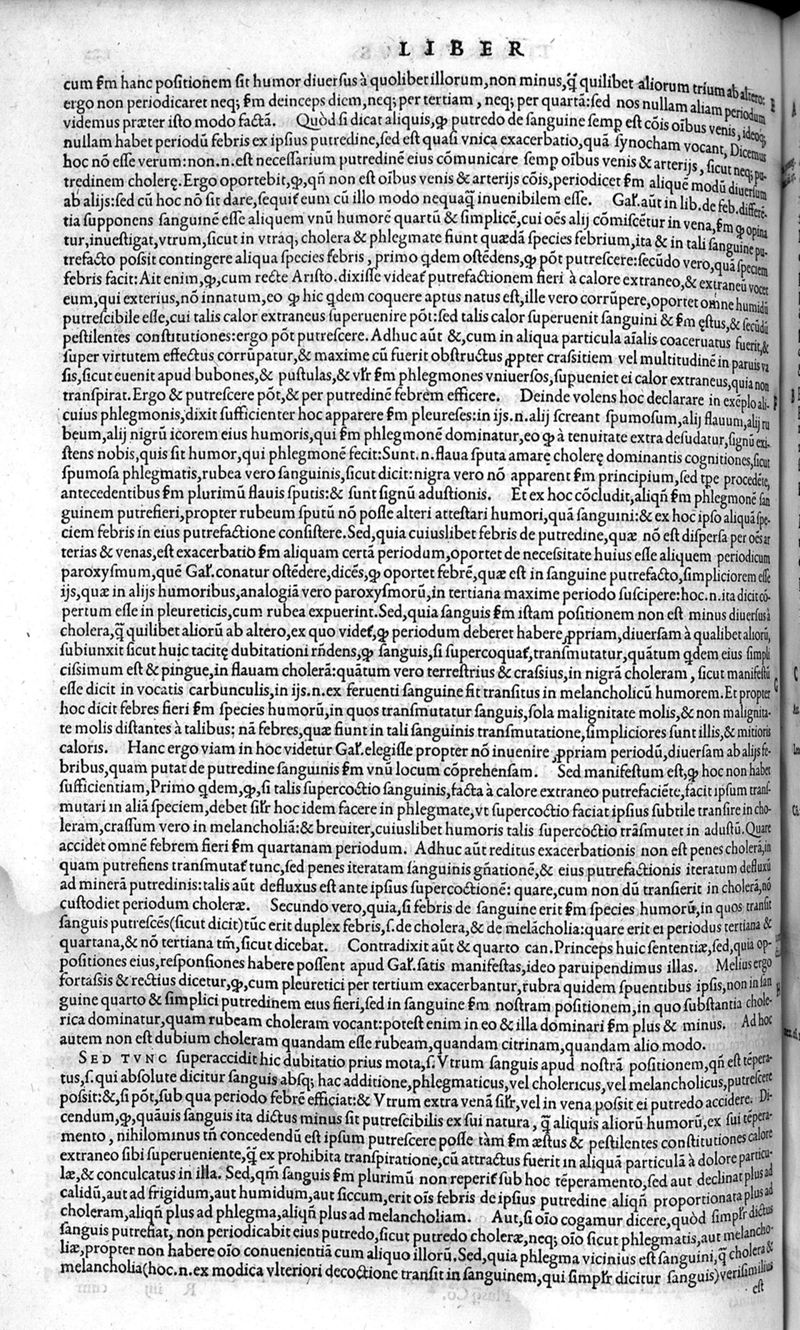 LIBER
cum ſm hanc poſitionem ſit humor diuerſus à quolibet illorum, non minus, q̃ quilibet aliorum trium ab altero:
ergo non periodicaret neq; ſm deinceps diem, neq; per tertiam, neq; per quartã: ſed nos nullam aliam periodum
videmus præter iſto modo factã. Quòd ſi dicat aliquis, ꝙ putredo de ſanguine ſemp eſt cõis oĩbus venis, ideoq;
nullam habet periodũ febris ex ipſius putredine, ſed eſt quaſi vnica exacerbatio, quã ſynocham vocant, Dicemus
hoc nõ eſſe verum: non. n. eſt neceſſarium putredinẽ eius cõmunicare ſemp oĩbus venis & arterijs, ſicut neq; pu-
tredinem cholerę. Ergo oportebit, ꝙ, qñ non eſt oĩbus venis & arterijs cõis, periodicet ſm aliquẽ modũ diuerſum
ab alijs: ſed cũ hoc nõ ſit dare, ſequit᷑ eum cũ illo modo nequaq̃ inuenibilem eſſe. Gal̃. aũt in lib. de feb. differẽ-
tia ſupponens ſanguinẽ eſſe aliquem vnũ humorẽ quartũ & ſimplicẽ, cui oẽs alij cõmiſcẽtur in vena, ſm ꝙ opina
tur, inueſtigat, vtrum, ſicut in vtraq; cholera & phlegmate fiunt quædã ſpecies febrium, ita & in tali ſanguine pu-
trefacto poſsit contingere aliqua ſpecies febris, primo qdem oſtẽdens, ꝙ põt putreſcere: ſecũdo vero, quã ſpeciem
febris facit: Ait enim, ꝙ, cum recte Ariſto. dixiſſe videat᷑ putrefactionem fieri à calore extraneo, & extraneũ vocet
eum, qui exterius, nõ innatum, eo ꝙ hic qdem coquere aptus natus eſt, ille vero corrũpere, oportet omne humidũ
putreſcibile eſſe, cui talis calor extraneus ſuperuenire põt: ſed talis calor ſuperuenit ſanguini & ſm ęſtus, & ſecũdũ
peſtilentes conſtitutiones: ergo põt putreſcere. Adhuc aũt &, cum in aliqua particula aĩalis coaceruatus fuerit, &
ſuper virtutem effectus corrũpatur, & maxime cũ fuerit obſtructus ꝓpter craſsitiem vel multitudinẽ in paruis va
ſis, ſicut euenit apud bubones, & puſtulas, & vlr̃ ſm phlegmones vniuerſos, ſupueniet ei calor extraneus, quia non
tranſpirat. Ergo & putreſcere põt, & per putredinẽ febrem efficere. Deinde volens hoc declarare in exẽplo ali-
cuius phlegmonis, dixit ſufficienter hoc apparere ſm pleureſes: in ijs. n. alij ſcreant ſpumoſum, alij flauum, alij ru
beum, alij nigrũ icorem eius humoris, qui ſm phlegmonẽ dominatur, eo ꝙ à tenuitate extra deſudatur, ſignũ exi-
ſtens nobis, quis ſit humor, qui phlegmonẽ fecit: Sunt. n. flaua ſputa amarę cholerę dominantis cognitiones, ſicut
ſpumoſa phlegmatis, rubea vero ſanguinis, ſicut dicit: nigra vero nõ apparent ſm principium, ſed tpe procedẽte,
antecedentibus ſm plurimũ flauis ſputis: & ſunt ſignũ aduſtionis. Et ex hoc cõcludit, aliqñ ſm phlegmonẽ ſan
guinem putrefieri, propter rubeum ſputũ nõ poſſe alteri atteſtari humori, quã ſanguini: & ex hoc ipſo aliquã ſpe-
ciem febris in eius putrefactione conſiſtere. Sed, quia cuiuslibet febris de putredine, quæ nõ eſt diſperſa per oẽs ar
terias & venas, eſt exacerbatio ſm aliquam certã periodum, oportet de neceſsitate huius eſſe aliquem periodicum
paroxyſmum, quẽ Gal̃. conatur oſtẽdere, dicẽs, ꝙ oportet febrẽ, quæ eſt in ſanguine putrefacto, ſimpliciorem eſſe
ijs, quæ in alijs humoribus, analogiã vero paroxyſmorũ, in tertiana maxime periodo ſuſcipere: hoc. n. ita dicit cõ-
pertum eſſe in pleureticis, cum rubea expuerint. Sed, quia ſanguis ſm iſtam poſitionem non eſt minus diuerſus à
cholera, q̃ quilibet aliorũ ab altero, ex quo videt᷑, ꝙ periodum deberet habere ꝓpriam, diuerſam à qualibet aliorũ,
ſubiunxit ſicut huic tacitę dubitationi rñdens, ꝙ ſanguis, ſi ſupercoquat᷑, tranſmutatur, quãtum qdem eius ſimpli
ciſsimum eſt & pingue, in flauam cholerã: quãtum vero terreſtrius & craſsius, in nigrã choleram, ſicut manifeſtũ
eſſe dicit in vocatis carbunculis, in ijs. n. ex feruenti ſanguine fit tranſitus in melancholicũ humorem. Et propter
hoc dicit febres fieri ſm ſpecies humorũ, in quos tranſmutatur ſanguis, ſola malignitate molis, & non malignita-
te molis diſtantes à talibus: nã febres, quæ fiunt in tali ſanguinis tranſmutatione, ſimpliciores ſunt illis, & mitioris
caloris. Hanc ergo viam in hoc videtur Gal̃. elegiſſe propter nõ inuenire ꝓpriam periodũ, diuerſam ab alijs fe-
bribus, quam putat de putredine ſanguinis ſm vnũ locum cõprehenſam. Sed manifeſtum eſt, ꝙ hoc non habet
ſufficientiam, Primo qdem, ꝙ, ſi talis ſupercoctio ſanguinis, facta à calore extraneo putrefaciẽte, facit ipſum tranſ-
mutari in aliã ſpeciem, debet ſil̃r hoc idem facere in phlegmate, vt ſupercoctio faciat ipſius ſubtile tranſire in cho-
leram, craſſum vero in melancholiã: & breuiter, cuiuslibet humoris talis ſupercoctio trãſmutet in aduſtũ. Quare
accidet omnẽ febrem fieri ſm quartanam periodum. Adhuc aũt reditus exacerbationis non eſt penes cholerã, in
quam putrefiens tranſmutat᷑ tunc, ſed penes iteratam ſanguinis gñationẽ, & eius putrefactionis iteratum defluxũ
ad minerã putredinis: talis aũt defluxus eſt ante ipſius ſupercoctionẽ: quare, cum non dũ tranſierit in cholerã, nõ
cuſtodiet periodum choleræ. Secundo vero, quia, ſi febris de ſanguine erit ſm ſpecies humorũ, in quos tranſit
ſanguis putreſcẽs (ſicut dicit) tũc erit duplex febris, ſ. de cholera, & de melãcholia: quare erit ei periodus tertiana &
quartana, & nõ tertiana tm̃, ſicut dicebat. Contradixit aũt & quarto can. Princeps huic ſententiæ, ſed, quia op-
poſitiones eius, reſponſiones habere poſſent apud Gal̃. ſatis manifeſtas, ideo paruipendimus illas. Melius ergo
fortaſsis & rectius dicetur, ꝙ, cum pleuretici per tertium exacerbantur, rubra quidem ſpuentibus ipſis, non in ſan
guine quarto & ſimplici putredinem eius fieri, ſed in ſanguine ſm noſtram poſitionem, in quo ſubſtantia chole-
rica dominatur, quam rubeam choleram vocant: poteſt enim in eo & illa dominari ſm plus & minus. Ad hoc
autem non eſt dubium choleram quandam eſſe rubeam, quandam citrinam, quandam alio modo.
SED TVNC ſuperaccidit hic dubitatio prius mota, ſ. Vtrum ſanguis apud noſtrã poſitionem, qñ eſt tẽpera-
tus, ſ. qui abſolute dicitur ſanguis abſq; hac additione, phlegmaticus, vel cholericus, vel melancholicus, putreſcere
poſsit: &, ſi põt, ſub qua periodo febrẽ efficiat: & Vtrum extra venã ſil̃r, vel in vena poſsit ei putredo accidere. Di-
cendum, ꝙ, quãuis ſanguis ita dictus minus ſit putreſcibilis ex ſui natura, q̃ aliquis aliorũ humorũ, ex ſui tẽpera-
mento, nihilominus tñ concedendũ eſt ipſum putreſcere poſſe tàm ſm æſtus & peſtilentes conſtitutiones calore
extraneo ſibi ſuperueniente, q̃ ex prohibita tranſpiratione, cũ attractus fuerit in aliquã particulã à dolore particu-
læ, & conculcatus in illa. Sed, qm̃ ſanguis ſm plurimũ non reperit᷑ ſub hoc tẽperamento, ſed aut declinat plus ad
calidũ, aut ad frigidum, aut humidum, aut ſiccum, erit oĩs febris de ipſius putredine aliqñ proportionata plus ad
choleram, aliqñ plus ad phlegma, aliqñ plus ad melancholiam. Aut, ſi oĩo cogamur dicere, quòd ſimplr̃ dictus
ſanguis putrefiat, non periodicabit eius putredo, ſicut putredo choleræ, neq; oĩo ſicut phlegmatis, aut melancho-
liæ, propter non habere oĩo conuenientiã cum aliquo illorũ. Sed, quia phlegma vicinius eſt ſanguini, q̃ cholera &
melancholia (hoc. n. ex modica vlteriori decoctione tranſit in ſanguinem, qui ſimplr̃ dicitur ſanguis) veriſimilius
eſt